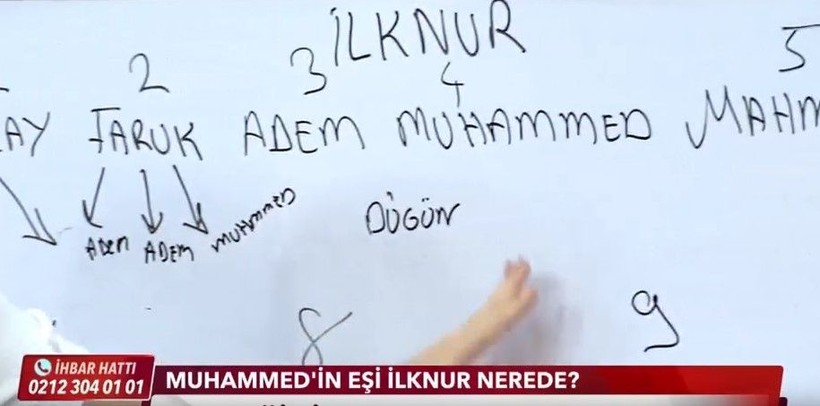 İLKNUR
2 3 4 5
AY FARUK ADEM MUHAMMED MAHM
ADEM ADEM MUHAMMED
DÜGÜN
8 9
İHBAR HATTI
0212 304 01 01
MUHAMMED'İN EŞİ İLKNUR NEREDE?